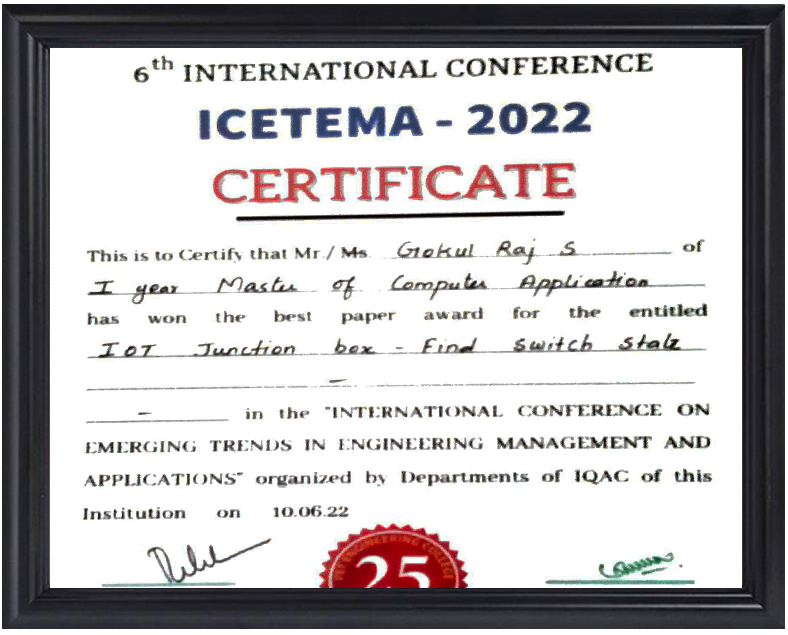 6th INTERNATIONAL CONFERENCE
ICETEMA - 2022
CERTIFICATE
This is to Certify that Mr./ Ms. Gokul Raj S of
I year Master of Computer Application
has won the best paper award for the entitled
IOT Junction box - Find Switch State
-
- in the "INTERNATIONAL CONFERENCE ON
EMERGING TRENDS IN ENGINEERING MANAGEMENT AND
APPLICATIONS" organized by Departments of IQAC of this
Institution on 10.06.22
ENGINEERING COLLEGE
25